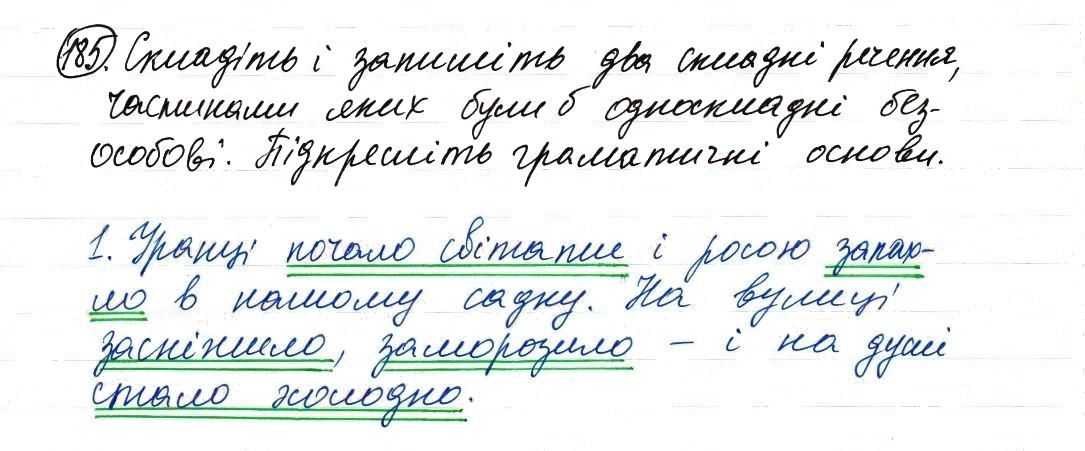 185. Складіть і запишіть два складні речення,
частинами яких були б односкладні без-
особові. Підкресліть граматичні основи.
1. Уранці почало світати і росою запах-
ло в нашому садку. На вулиці
засніжило, заморозило – і на душі
стало холодно.